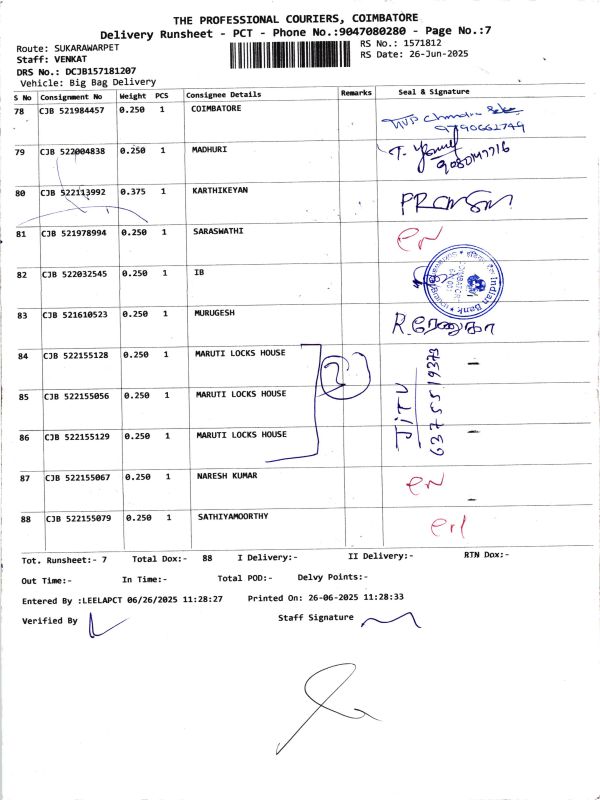 THE PROFESSIONAL COURIERS, COIMBATORE
Delivery Runsheet - PCT - Phone No.:9047080280 - Page No.:7
Route: SUKARAWARPET
RS No.: 1571812
Staff: VENKAT
RS Date: 26-Jun-2025
DRS No.: DCJB157181207
Vehicle: Big Bag Delivery
S No Consignment No Weight PCS Consignee Details Remarks Seal & Signature
78 CJB 521984457 0.250 1 COIMBATORE
79 CJB 522004838 0.250 1 MADHURI
80 CJB 522113992 0.375 1 KARTHIKEYAN
81 CJB 521978994 0.250 1 SARASWATHI
82 CJB 522032545 0.250 1 IB
Indian Bank
83 CJB 521610523 0.250 1 MURUGESH
R. ரேணுகா
84 CJB 522155128 0.250 1 MARUTI LOCKS HOUSE
85 CJB 522155056 0.250 1 MARUTI LOCKS HOUSE
86 CJB 522155129 0.250 1 MARUTI LOCKS HOUSE
JiTU
6375519373
87 CJB 522155067 0.250 1 NARESH KUMAR
88 CJB 522155079 0.250 1 SATHIYAMOORTHY
Tot. Runsheet:- 7 Total Dox:- 88 I Delivery:- II Delivery:- RTN Dox:-
Out Time:- In Time:- Total POD:- Delvy Points:-
Entered By :LEELAPCT 06/26/2025 11:28:27 Printed On: 26-06-2025 11:28:33
Verified By Staff Signature